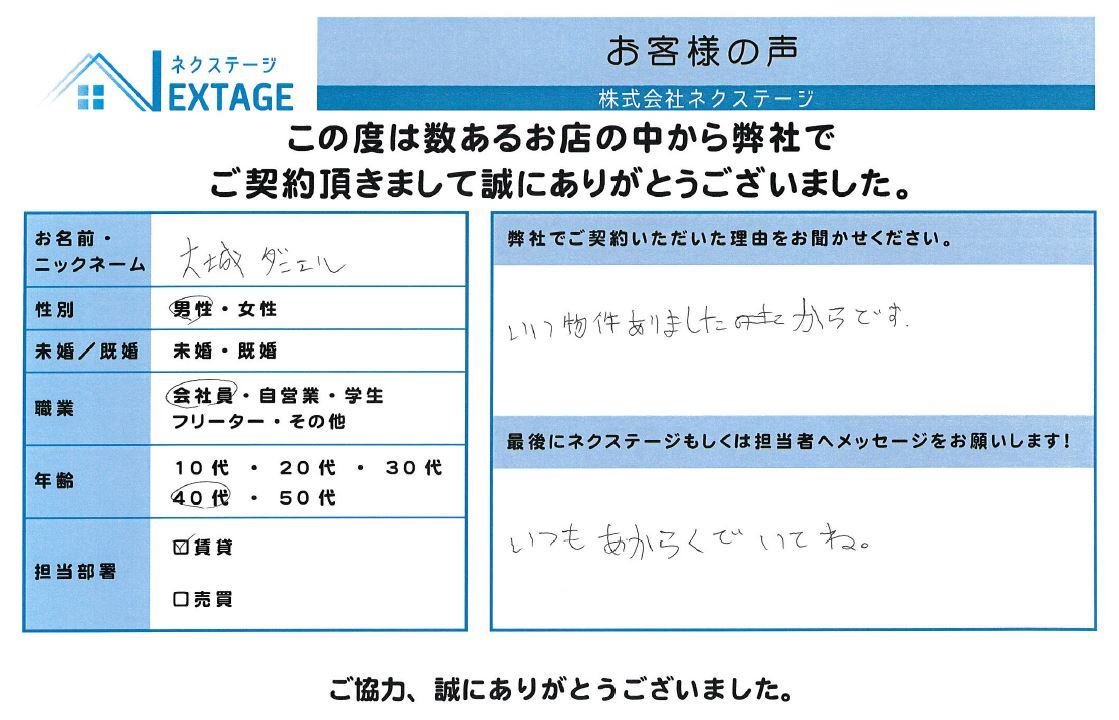 ネクステージ
NEXTAGE
お客様の声
株式会社ネクステージ
この度は数あるお店の中から弊社で
ご契約頂きまして誠にありがとうございました。
お名前・
ニックネーム
大城 ダニエル
性別
男性・女性
未婚／既婚
未婚・既婚
職業
会社員・自営業・学生
フリーター・その他
年齢
10代 ・ 20代 ・ 30代
40代 ・ 50代
担当部署
☑賃貸
□売買
弊社でご契約いただいた理由をお聞かせください。
いい物件ありました からです.
最後にネクステージもしくは担当者へメッセージをお願いします!
いつも あからくで いてね。
ご協力、誠にありがとうございました。